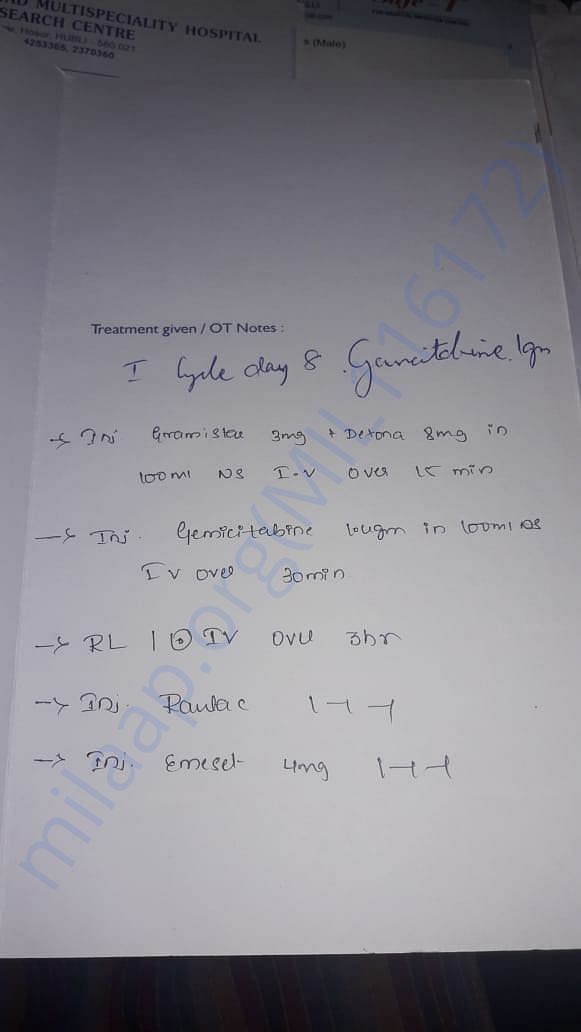 MULTISPECIALITY HOSPITAL
SEARCH CENTRE
Hosur, HUBLI - 580 021
4253365, 2370360
s (Male)
Treatment given / OT Notes :
I Cycle day 8. Gemcitabine 1gm
→ Inj 3mg + Dexona 8mg in
100ml NS I-V over 15 min
→ Inj. Gemicitabine in 100ml NS
IV over 30min
→ RL 1 IV over 3hr
→ Inj. Rantac 1-1-1
→ Inj. Emeset 4mg 1-1-1
milaap.org(MIL116172)